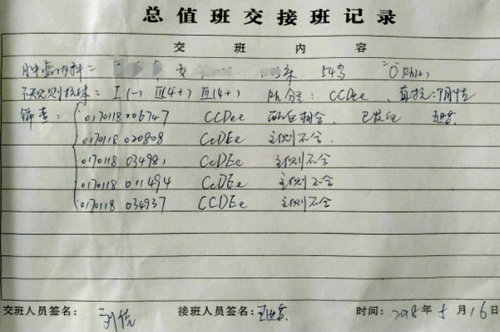 总值班交接班记录
交 班 内 容
肿瘤内科二 女 床 54岁 "O"Rh(+)
不规则抗体: I(-) II(4+) III(4+) Rh分型: CCDee 直抗:阴性
筛查: 0170118 006747 CCDee 配血相合 已发血
0170118 020808 CcDEe 主侧不合
0170118 034981 CcDEe 主侧不合
0170118 011494 CcDEe 主侧不合
0170118 034937 CCDEe 主侧不合
交班人员签名: 接班人员签名: 时间: 2018年5月16日